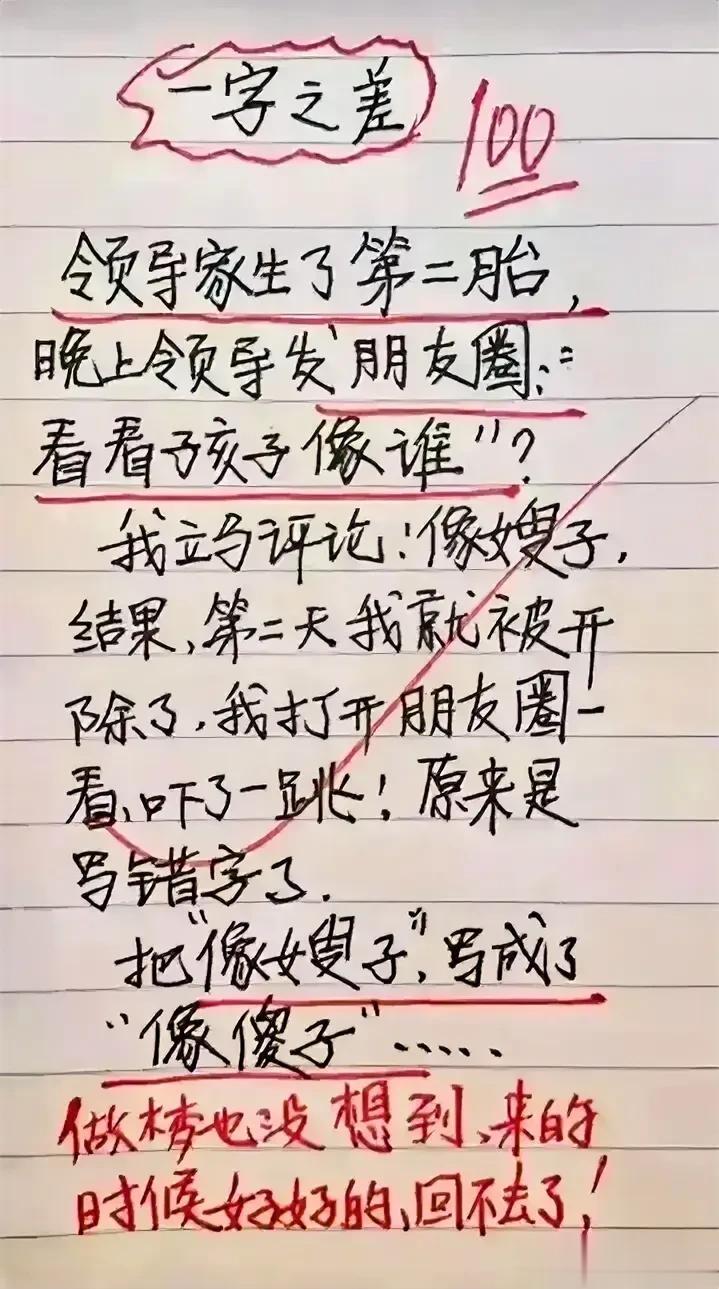 一字之差
100
领导家生了第二胎,
晚上领导发“朋友圈::
看看孩子像谁”?
我立马评论:像嫂子,
结果,第二天我就被开
除了.我打开朋友圈一
看、吓了一跳!原来是
写错字了.
把“像嫂子”,写成了
“像傻子”.....
做梦也没想到、来的
时候好好的、回不去了!